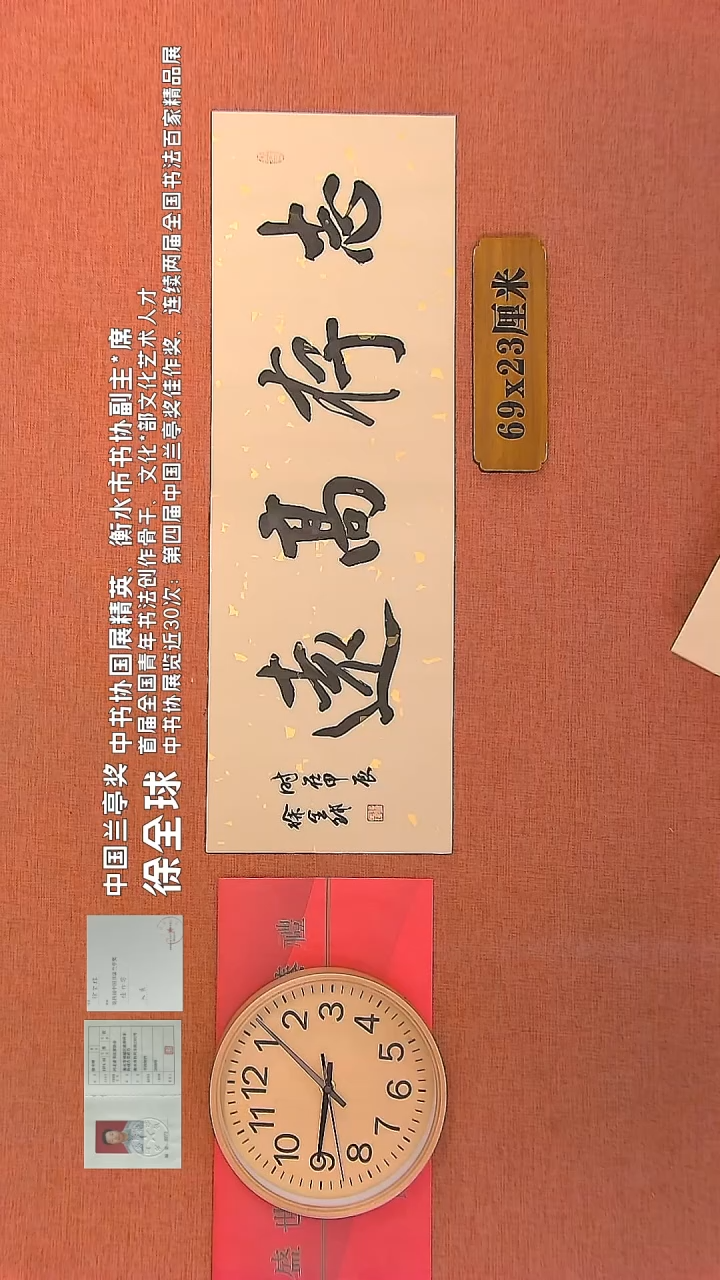 中国兰亭奖
徐全球
中书协国展精英、衡水市书协副主*席
首届全国青年书法创作骨干、文化*部文化艺术人才
中书协展览近30次：第四届中国兰亭奖佳作奖、连续两届全国书法百家精品展
志存高遠
时在甲辰
徐全球
69x23厘米
盛世
禮
12
1
2
3
4
5
6
7
8
9
10
11